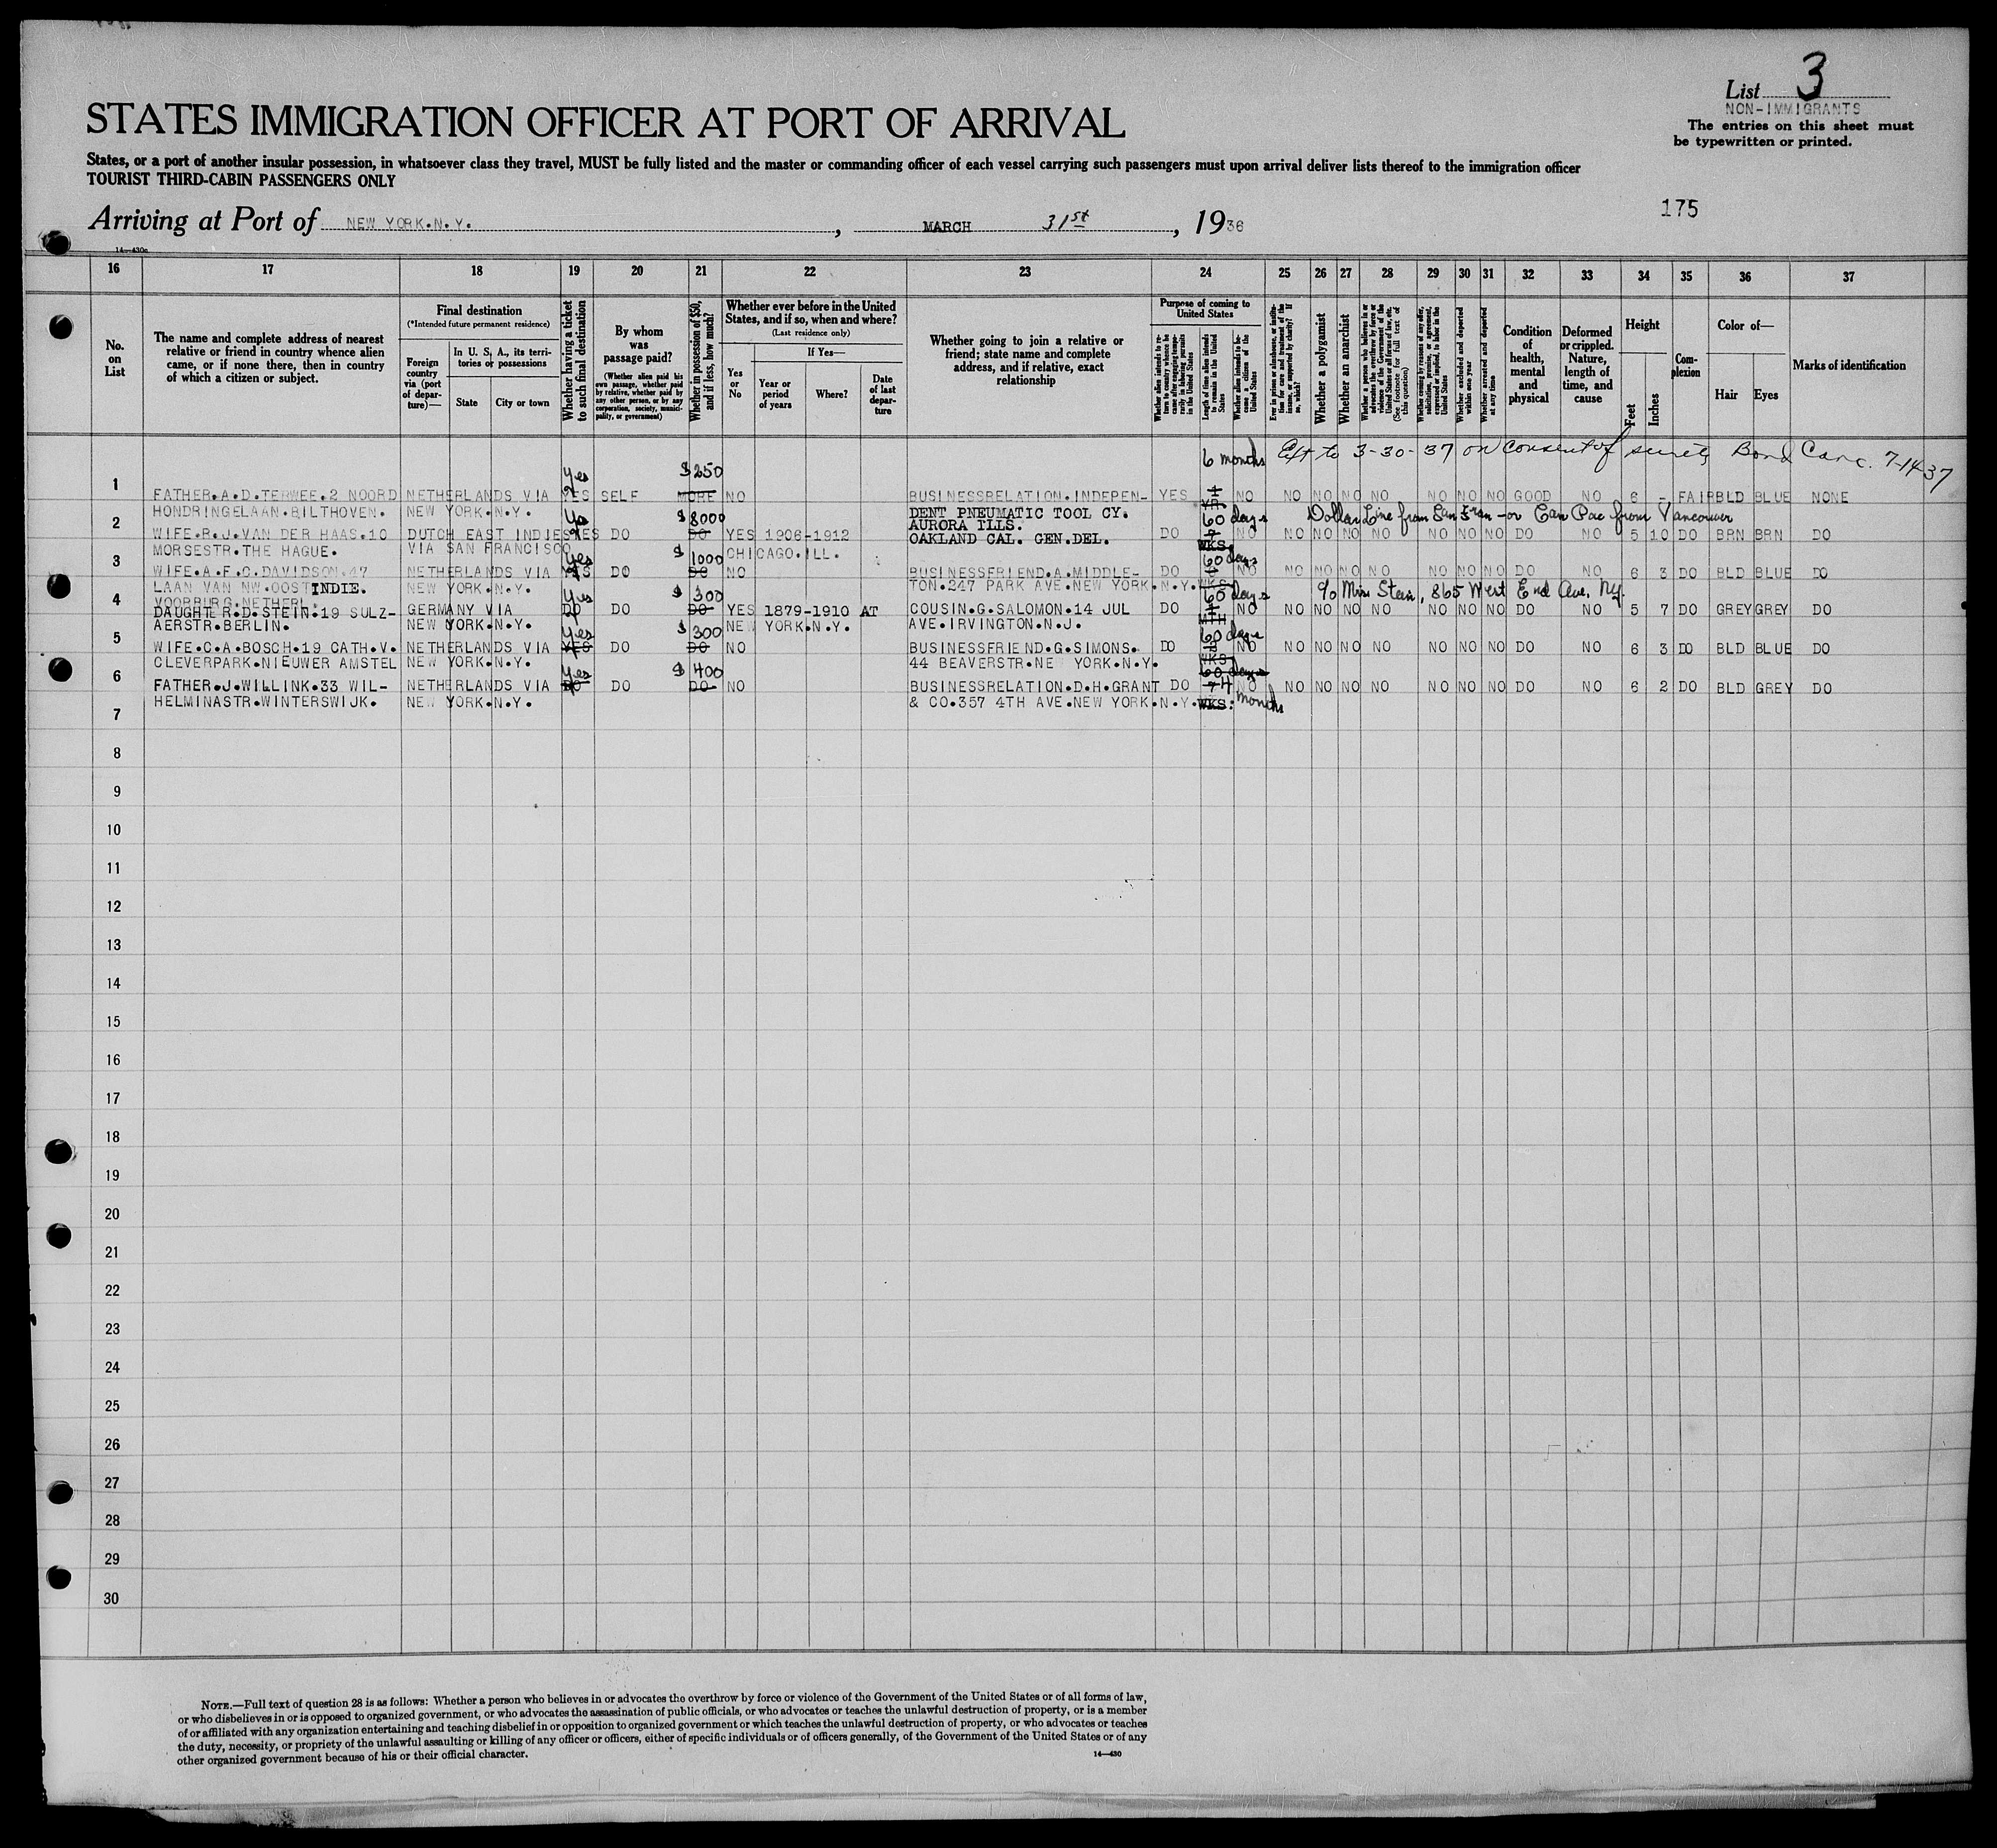 List 3
NON-IMMIGRANTS
The entries on this sheet must
be typewritten or printed.
STATES IMMIGRATION OFFICER AT PORT OF ARRIVAL
States, or a port of another insular possession, in whatsoever class they travel, MUST be fully listed and the master or commanding officer of each vessel carrying such passengers must upon arrival deliver lists thereof to the immigration officer
TOURIST THIRD-CABIN PASSENGERS ONLY
175
Arriving at Port of NEW YORK.N.Y. , MARCH 31st , 1936
16 17 18 19 20 21 22 23 24 25 26 27 28 29 30 31 32 33 34 35 36 37
No. on List
The name and complete address of nearest
relative or friend in country whence alien
came, or if none there, then in country
of which a citizen or subject.
Final destination
(*Intended future permanent residence)
Foreign country via (port of departure)—
In U. S. A., its territories of possessions
State
City or town
Whether having a ticket to such final destination
By whom was passage paid?
(Whether alien paid his own passage, whether paid by relative, whether paid by any other person, or by any corporation, society, municipality, or government)
Whether in possession of $50, and if less, how much?
Whether ever before in the United States, and if so, when and where?
(Last residence only)
Yes or No
If Yes—
Year or period of years
Where?
Date of last departure
Whether going to join a relative or
friend; state name and complete
address, and if relative, exact
relationship
Purpose of coming to United States
Whether alien intends to return to country whence he came after engaging temporarily in laboring pursuits in the United States
Length of time alien intends to remain in the United States
Whether alien intends to become a citizen of the United States
Ever in prison or almshouse, or institution for care and treatment of the insane, or supported by charity? If so, which?
Whether a polygamist
Whether an anarchist
Whether a person who believes in or advocates the overthrow by force or violence of the Government of the United States or all forms of law, etc. (See footnote for full text of this question)
Whether coming by reasons of any offer, solicitation, promise, or agreement, expressed or implied, to labor in the United States
Whether excluded and deported within one year
Whether arrested and deported at any time
Condition of health, mental and physical
Deformed or crippled. Nature, length of time, and cause
Height
Feet
Inches
Complexion
Color of—
Hair
Eyes
Marks of identification
6 months Ext to 3-30-37 on consent of surety Bond Canc. 7-14-37
Yes $250
1 FATHER.A.D.TERWEE.2 NOORD NETHERLANDS VIA YES SELF MORE NO BUSINESSRELATION.INDEPEN- YES 1 NO NO NO NO NO NO NO NO GOOD NO 6 - FAIR BLD BLUE NONE
HONDRINGELAAN.BILTHOVEN. NEW YORK.N.Y. DENT PNEUMATIC TOOL CY. YR.
Yes $8000 AURORA ILLS. 60 days Dollar Line from San Fran - or Can Pac from Vancouver
2 WIFE.R.J.VAN DER HAAS.10 DUTCH EAST INDIES YES DO DO YES 1906-1912 OAKLAND CAL. GEN.DEL. DO NO NO NO NO NO NO NO NO DO NO 5 10 DO BRN BRN DO
MORSESTR.THE HAGUE. VIA SAN FRANCISCO CHICAGO.ILL. WKS.
Yes $1000 60 days
3 WIFE.A.F.C.DAVIDSON.47 NETHERLANDS VIA YES DO DO NO BUSINESSFRIEND.A.MIDDLE- DO NO NO NO NO NO NO NO NO DO NO 6 3 DO BLD BLUE DO
LAAN VAN NW.OOSTINDIE. NEW YORK.N.Y. TON.247 PARK AVE.NEW YORK.N.Y. WKS.
VOORBURG.NETHERL. Yes $300 60 days c/o Miss Stein, 865 West End Ave. Ny.
4 DAUGHTER.D.STEIN.19 SULZ- GERMANY VIA DO DO DO YES 1879-1910 AT COUSIN.G.SALOMON.14 JUL DO 1 NO NO NO NO NO NO NO NO DO NO 5 7 DO GREY GREY DO
AERSTR.BERLIN. NEW YORK.N.Y. NEW YORK.N.Y. AVE.IRVINGTON.N.J. MTH
Yes $300 60 days
5 WIFE.C.A.BOSCH.19 CATH.V. NETHERLANDS VIA YES DO DO NO BUSINESSFRIEND.G.SIMONS. DO NO NO NO NO NO NO NO NO DO NO 6 3 DO BLD BLUE DO
CLEVERPARK.NIEUWER AMSTEL NEW YORK.N.Y. 44 BEAVERSTR.NEW YORK.N.Y. WKS.
Yes $400 60 days
6 FATHER.J.WILLINK.33 WIL- NETHERLANDS VIA DO DO DO NO BUSINESSRELATION.D.H.GRANT DO 4 NO NO NO NO NO NO NO NO DO NO 6 2 DO BLD GREY DO
HELMINASTR.WINTERSWIJK. NEW YORK.N.Y. & CO.357 4TH AVE.NEW YORK.N.Y. WKS. months
7
8
9
10
11
12
13
14
15
16
17
18
19
20
21
22
23
24
25
26
27
28
29
30
NOTE.—Full text of question 28 is as follows: Whether a person who believes in or advocates the overthrow by force or violence of the Government of the United States or of all forms of law,
or who disbelieves in or is opposed to organized government, or who advocates the assassination of public officials, or who advocates or teaches the unlawful destruction of property, or is a member
of or affiliated with any organization entertaining and teaching disbelief in or opposition to organized government or which teaches the unlawful destruction of property, or who advocates or teaches
the duty, necessity, or propriety of the unlawful assaulting or killing of any officer or officers, either of specific individuals or of officers generally, of the Government of the United States or of any
other organized government because of his or their official character.
14—430